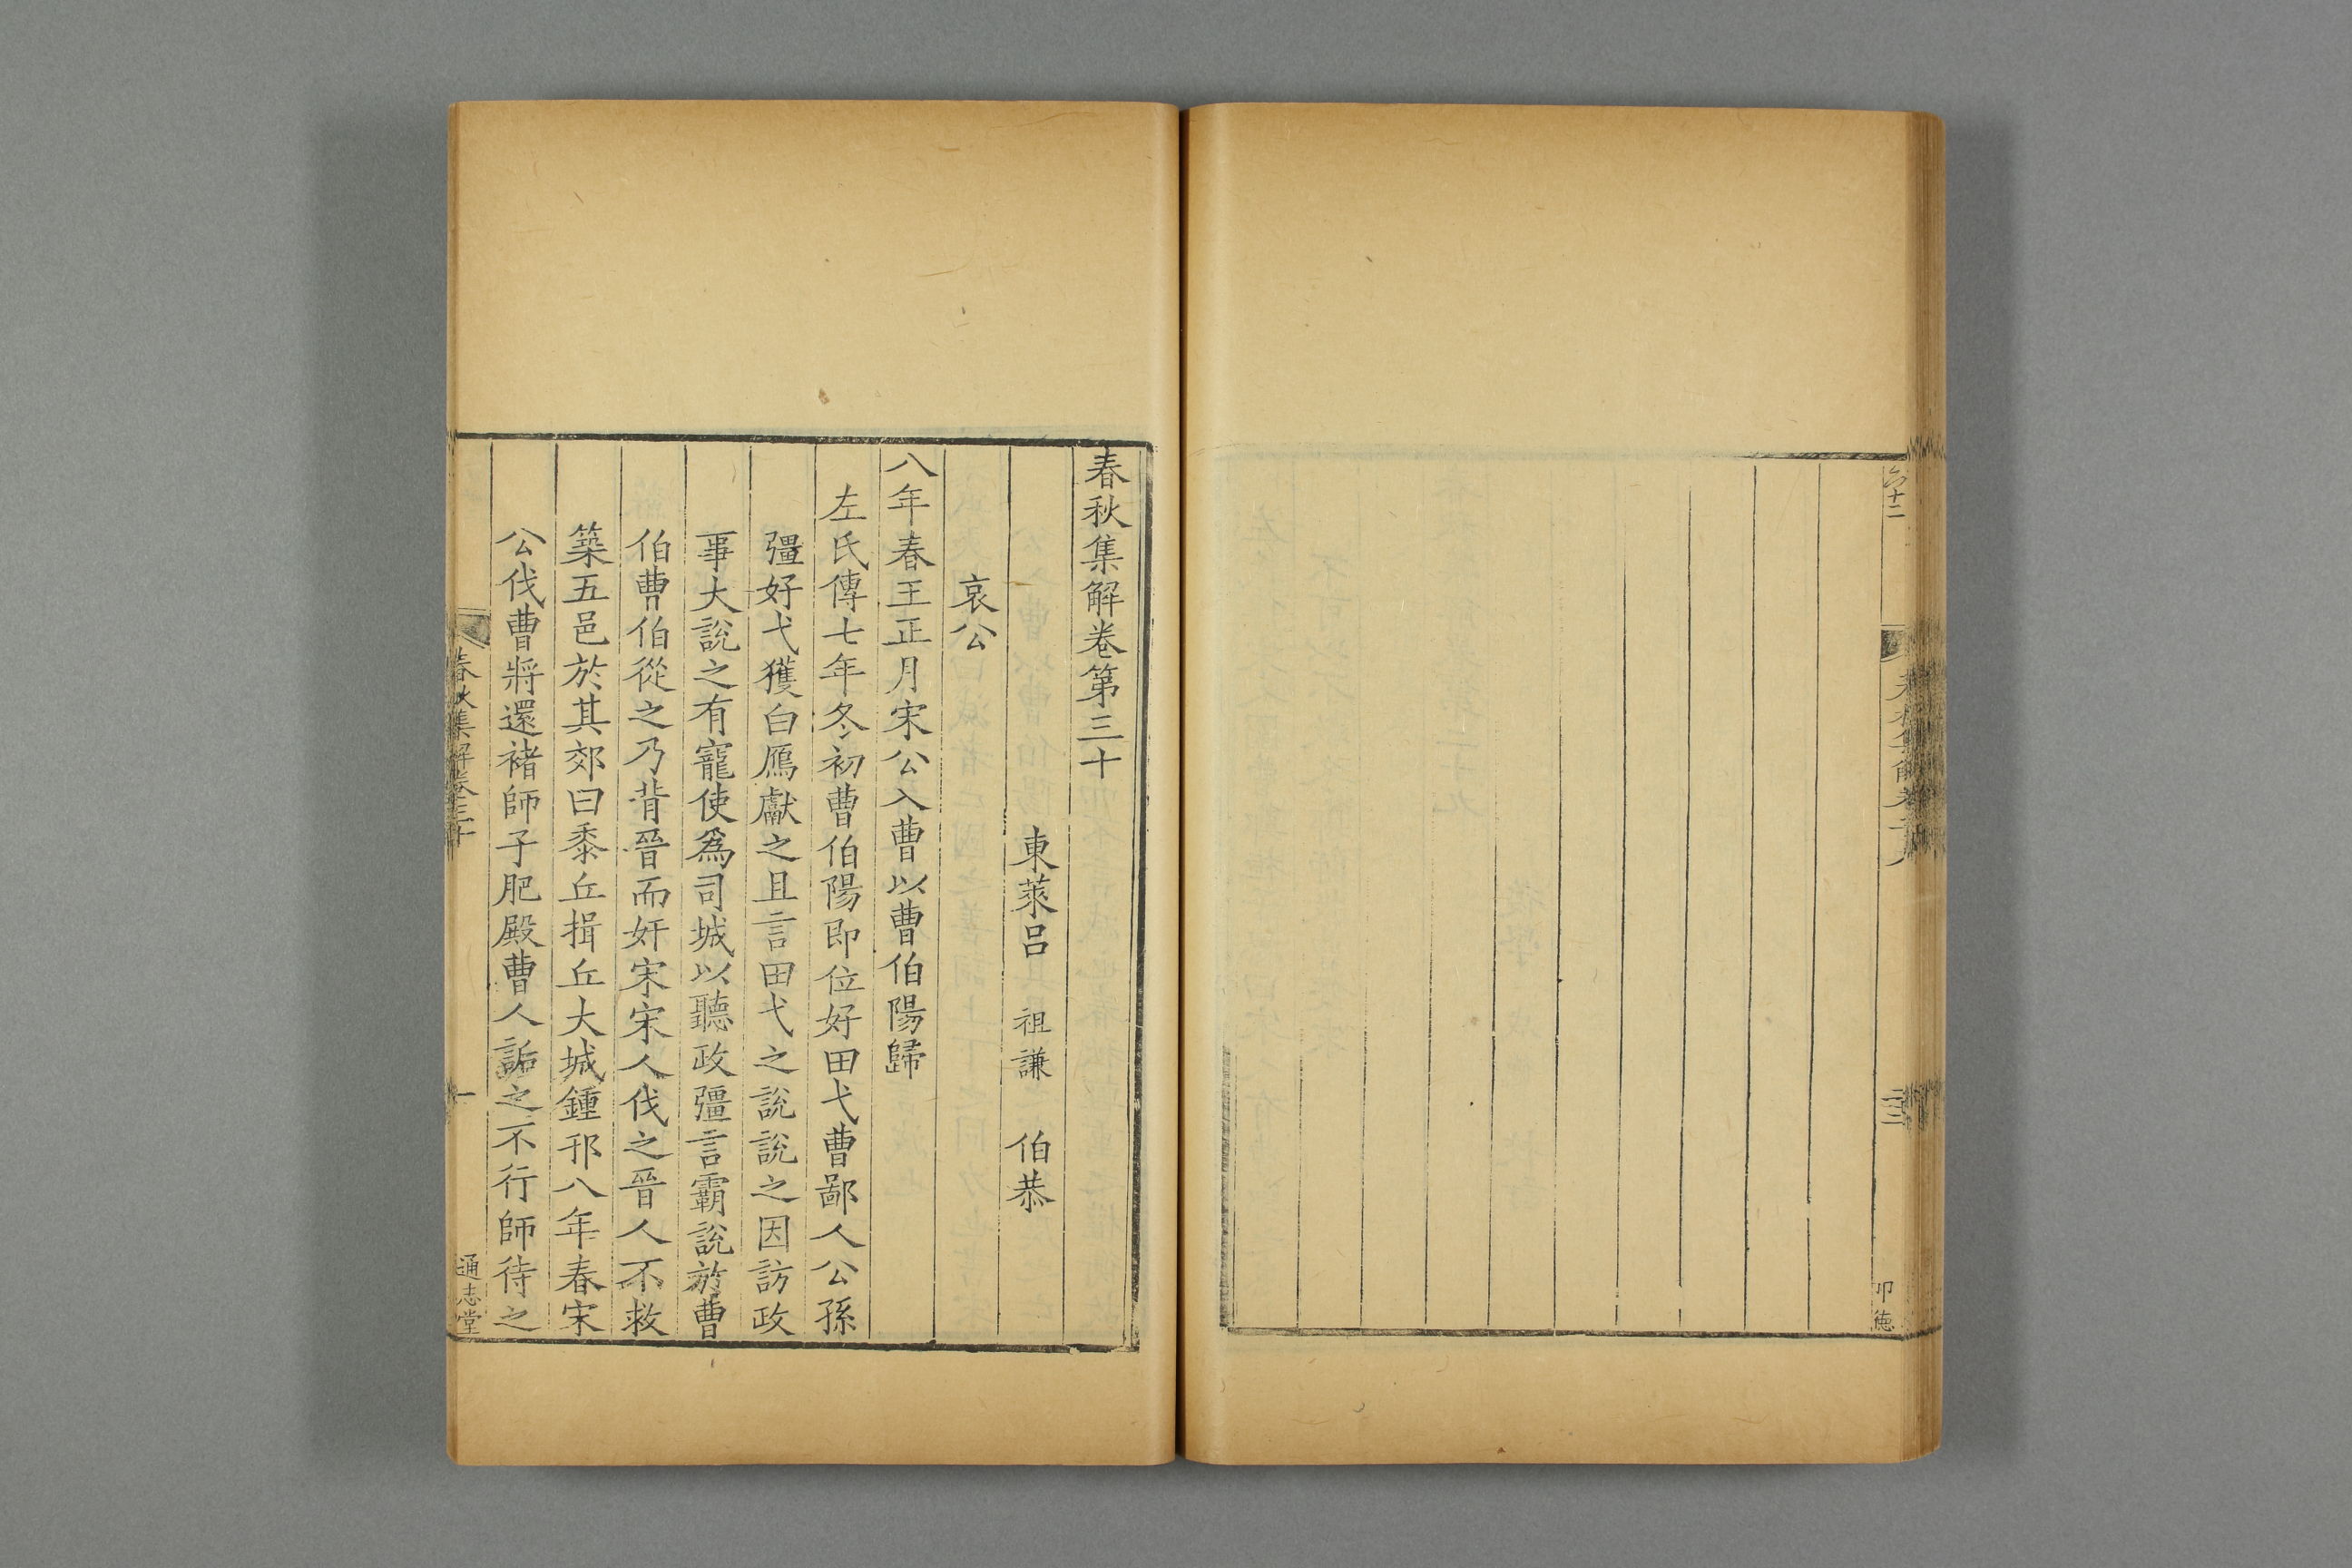 春秋集解卷第三十
東萊呂 祖謙 伯恭
哀公
八年春王正月宋公入曹以曹伯陽歸
左氏傳七年冬初曹伯陽即位好田弋曹鄙人公孫
彊好弋獲白鴈獻之且言田弋之說說之因訪政
事大說之有寵使爲司城以聽政彊言霸說於曹
伯曹伯從之乃背晉而奸宋宋人伐之晉人不救
築五邑於其郊曰黍丘揖丘大城鍾邘八年春宋
公伐曹將還褚師子肥殿曹人詬之不行師待之
春秋集解卷三十
一
通志堂